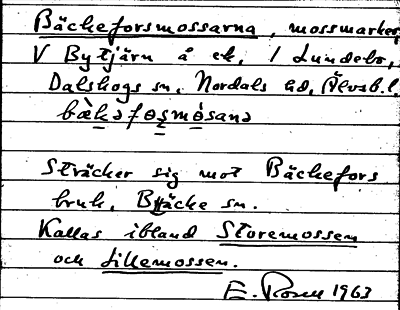 Bäckeforsmossarna, mossmarker,
V Bytjärn å ek, 1 Lundebo,
Dalskogs sn, Nordals hd, Älvsb.l.
bæ̀kəfɷsmɷ́sana
Sträcker sig mot Bäckefors
bruk, Bäcke sn.
Kallas ibland Storemossen
och Lillemossen.
E. Rosen 1963